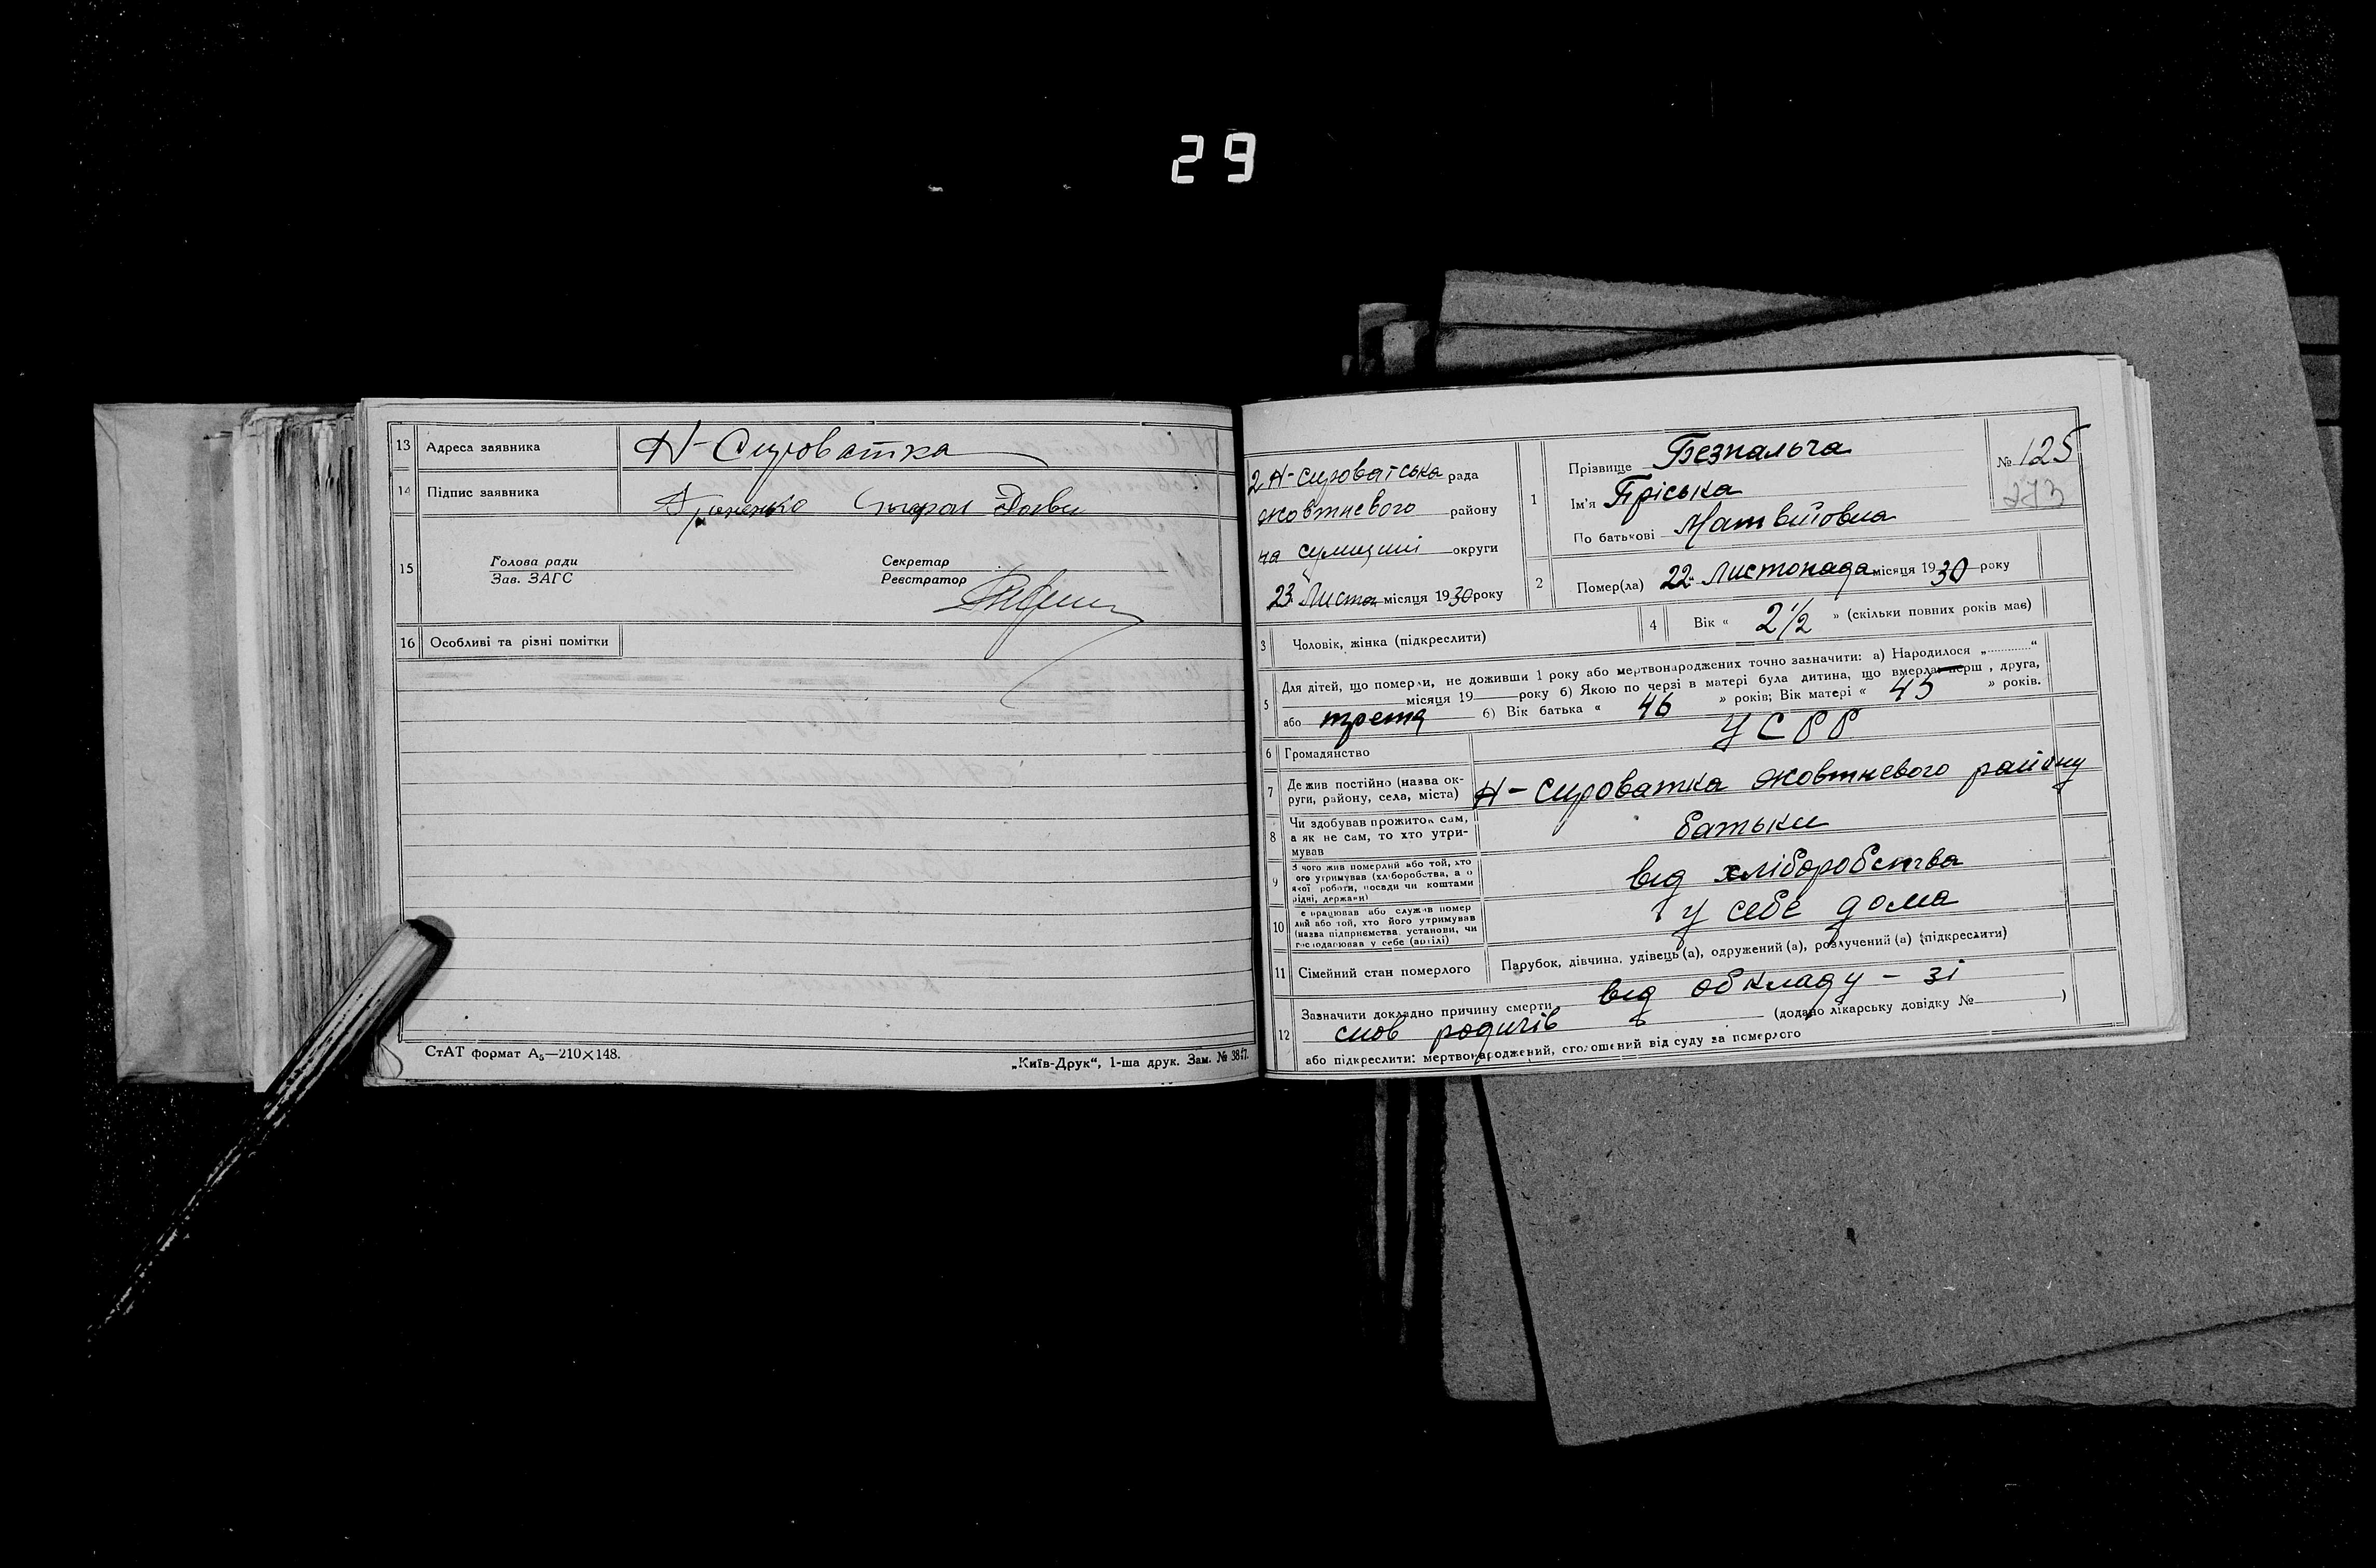 29
13 Адреса заявника Н-Сироватка
14 Підпис заявника
15 Голова ради Секретар
Зав. ЗАГС Реєстратор
16 Особливі та різні помітки
СтАТ формат А5—210×148. „Київ-Друк“, 1-ша друк. Зам. №
2 Н-Сироватська рада
Жовтневого району
на Сумщині округи
23 Листоп місяця 1930 року
1 Прізвище Безпальча
Ім'я Пріська
По батькові Матвіївна
№ 125
273
2 Помер(ла) 22 Листопада місяця 1930 року
3 Чоловік, жінка (підкреслити)
4 Вік « 2 1/2 » (скільки повних років має)
5 Для дітей, що померли, не доживши 1 року або мертвонароджених точно зазначити: а) Народилося „............“
місяця 19 року б) Якою по черзі в матері була дитина, що вмерла: перш , друга,
або третя б) Вік батька « 46 » років; Вік матері « 45 » років.
6 Громадянство УСРР
7 Де жив постійно (назва ок-
руги, району, села, міста) Н-Сироватка Жовтневого району
8 Чи здобував прожиток сам,
а як не сам, то хто утри-
мував батьки
9 З чого жив померлий або той, хто
ого утримував (хліборобства, а о
якої роботи, посади чи коштами
рідні, держави) від хліборобства
10 е працював або служив помер
лий або той, хто його утримував
(назва підприємства, установи, чи
господарював у себе (артілі) у себе дома
11 Сімейний стан померлого Парубок, дівчина, удівець (а), одружений (а), розлучений (а) (підкреслити)
12 Зазначити докладно причину смерти від обкладу - зі
слов родичів (додано лікарську довідку № )
або підкреслити: мертвонароджений, оголошений від суду за померлого